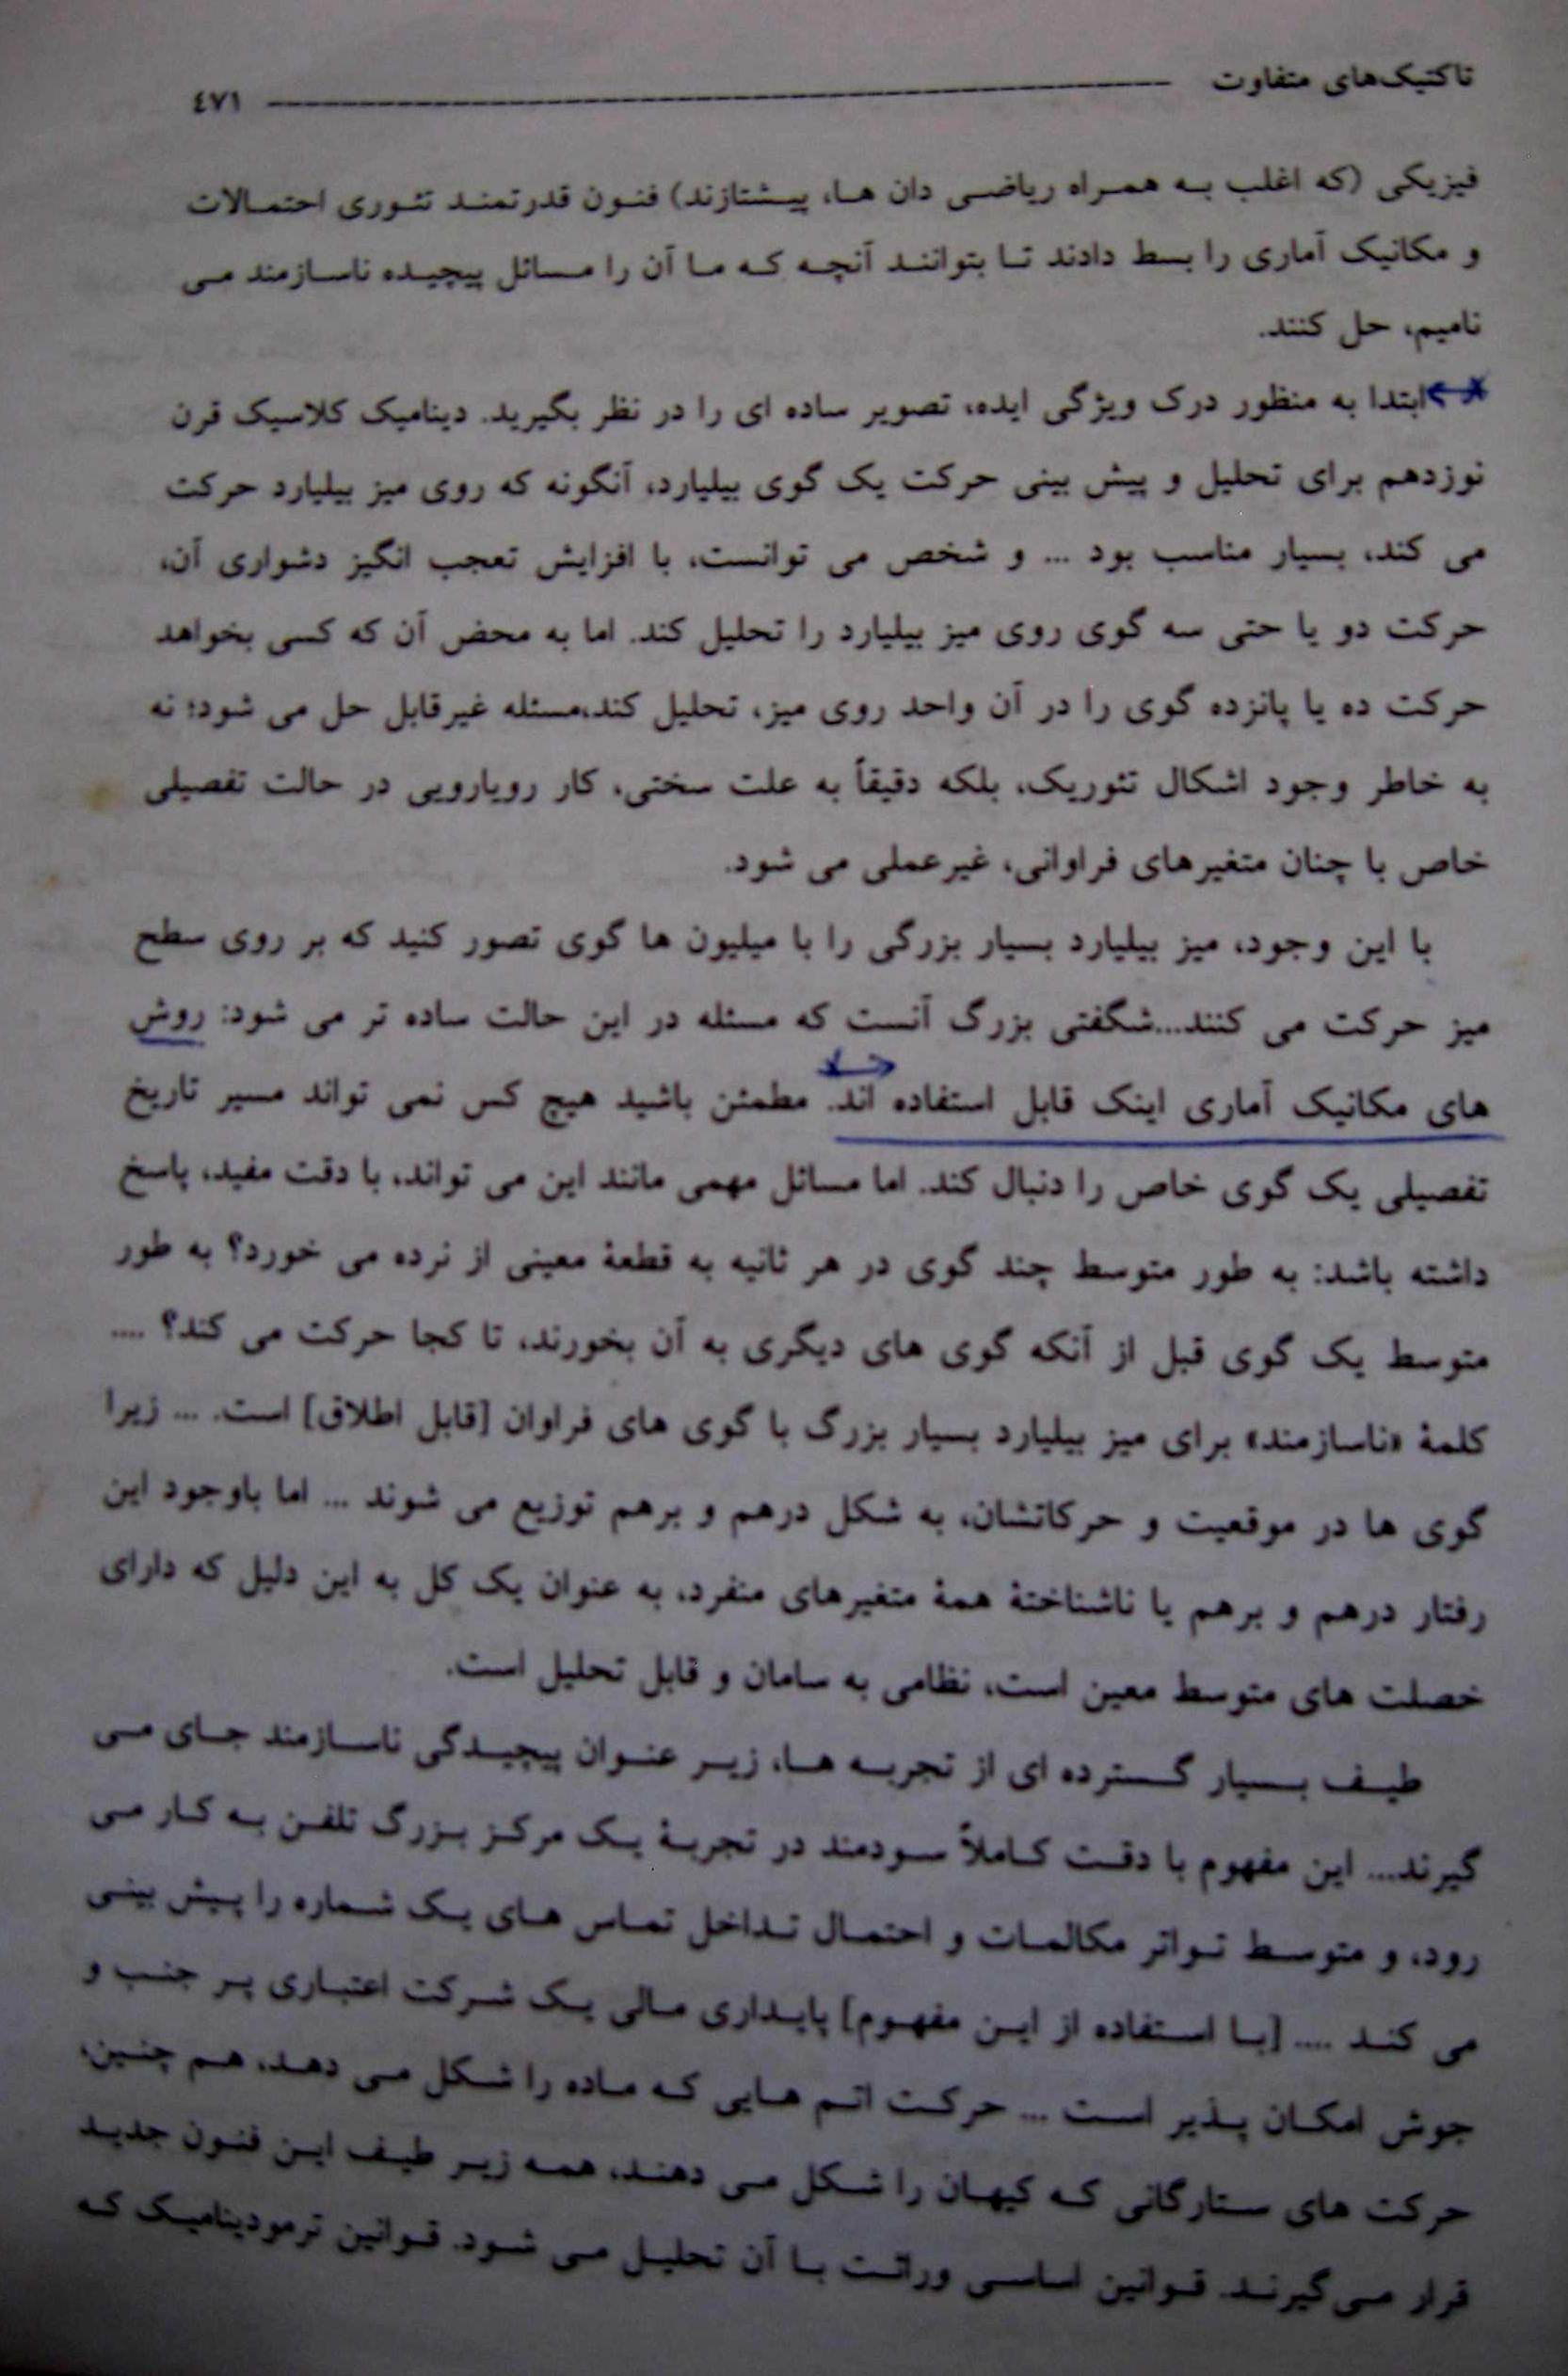 تاکتیک‌های متفاوت ٤٧١
فیزیکی (که اغلب به همراه ریاضی دان ها، پیشتازند) فنون قدرتمند تئوری احتمالات
و مکانیک آماری را بسط دادند تا بتوانند آنچه که ما آن را مسائل پیچیده ناسازمند می
نامیم، حل کنند.
ابتدا به منظور درک ویژگی ایده، تصویر ساده ای را در نظر بگیرید. دینامیک کلاسیک قرن
نوزدهم برای تحلیل و پیش بینی حرکت یک گوی بیلیارد، آنگونه که روی میز بیلیارد حرکت
می کند، بسیار مناسب بود ... و شخص می توانست، با افزایش تعجب انگیز دشواری آن،
حرکت دو یا حتی سه گوی روی میز بیلیارد را تحلیل کند. اما به محض آن که کسی بخواهد
حرکت ده یا پانزده گوی را در آن واحد روی میز، تحلیل کند،مسئله غیرقابل حل می شود؛ نه
به خاطر وجود اشکال تئوریک، بلکه دقیقاً به علت سختی، کار رویارویی در حالت تفصیلی
خاص با چنان متغیرهای فراوانی، غیرعملی می شود.
با این وجود، میز بیلیارد بسیار بزرگی را با میلیون ها گوی تصور کنید که بر روی سطح
میز حرکت می کنند...شگفتی بزرگ آنست که مسئله در این حالت ساده تر می شود: روش
های مکانیک آماری اینک قابل استفاده اند. مطمئن باشید هیچ کس نمی تواند مسیر تاریخ
تفصیلی یک گوی خاص را دنبال کند. اما مسائل مهمی مانند این می تواند، با دقت مفید، پاسخ
داشته باشد: به طور متوسط چند گوی در هر ثانیه به قطعهٔ معینی از نرده می خورد؟ به طور
متوسط یک گوی قبل از آنکه گوی های دیگری به آن بخورند، تا کجا حرکت می کند؟ ....
کلمهٔ «ناسازمند» برای میز بیلیارد بسیار بزرگ با گوی های فراوان [قابل اطلاق] است. ... زیرا
گوی ها در موقعیت و حرکاتشان، به شکل درهم و برهم توزیع می شوند ... اما باوجود این
رفتار درهم و برهم یا ناشناختهٔ همهٔ متغیرهای منفرد، به عنوان یک کل به این دلیل که دارای
خصلت های متوسط معین است، نظامی به سامان و قابل تحلیل است.
طیف بسیار گسترده ای از تجربه ها، زیر عنوان پیچیدگی ناسازمند جای می
گیرند... این مفهوم با دقت کاملاً سودمند در تجربهٔ یک مرکز بزرگ تلفن به کار می
رود، و متوسط تواتر مکالمات و احتمال تداخل تماس های یک شماره را پیش بینی
می کند .... [با استفاده از این مفهوم] پایداری مالی یک شرکت اعتباری پر جنب و
جوش امکان پذیر است ... حرکت اتم هایی که ماده را شکل می دهد، هم چنین،
حرکت های ستارگانی که کیهان را شکل می دهند، همه زیر طیف این فنون جدید
قرار می‌گیرند. قوانین اساسی وراثت با آن تحلیل می شود. قوانین ترمودینامیک که